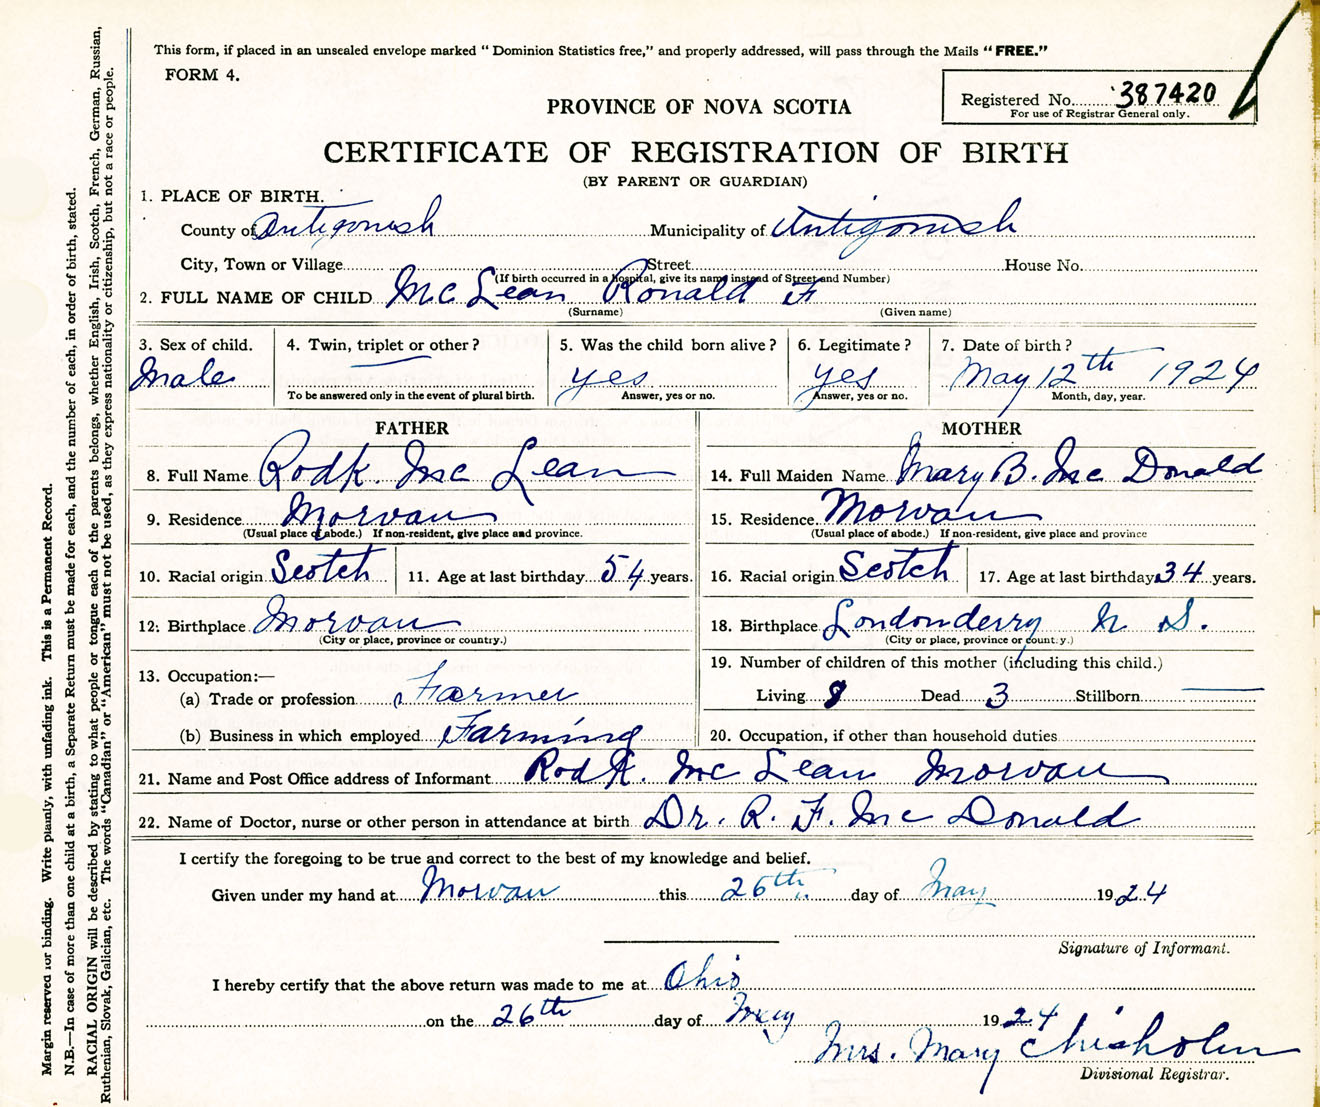 This form, if placed in an unsealed envelope marked "Dominion Statistics free," and properly addressed, will pass through the Mails "FREE."
FORM 4.
Registered No. 387420
For use of Registrar General only.
PROVINCE OF NOVA SCOTIA
CERTIFICATE OF REGISTRATION OF BIRTH
(BY PARENT OR GUARDIAN)
1. PLACE OF BIRTH.
County of Antigonish Municipality of Antigonish
City, Town or Village Street House No.
(If birth occurred in a hospital, give its name instead of Street and Number)
2. FULL NAME OF CHILD Mc Lean Ronald F
(Surname) (Given name)
3. Sex of child. 4. Twin, triplet or other? 5. Was the child born alive? 6. Legitimate? 7. Date of birth?
Male yes yes May 12th 1924
To be answered only in the event of plural birth. Answer, yes or no. Answer, yes or no. Month, day, year.
FATHER MOTHER
8. Full Name Rodk. Mc Lean 14. Full Maiden Name Mary B. Mc Donald
9. Residence Morvan 15. Residence Morvan
(Usual place of abode.) If non-resident, give place and province. (Usual place of abode.) If non-resident, give place and province
10. Racial origin Scotch 11. Age at last birthday 54 years. 16. Racial origin Scotch 17. Age at last birthday 34 years.
12. Birthplace Morvan 18. Birthplace Londonderry N S.
(City or place, province or country.) (City or place, province or country.)
13. Occupation:— 19. Number of children of this mother (including this child.)
(a) Trade or profession Farmer Living 8 Dead 3 Stillborn
(b) Business in which employed Farming 20. Occupation, if other than household duties
21. Name and Post Office address of Informant Rodk. Mc Lean Morvan
22. Name of Doctor, nurse or other person in attendance at birth Dr. R. F. Mc Donald
I certify the foregoing to be true and correct to the best of my knowledge and belief.
Given under my hand at Morvan this 26th day of May 1924
Signature of Informant.
I hereby certify that the above return was made to me at Ohio
on the 26th day of May 1924
Mrs. Mary Chisholm
Divisional Registrar.
Margin reserved for binding. Write plainly, with unfading ink. This is a Permanent Record.
N.B.—In case of more than one child at a birth, a Separate Return must be made for each, and the number of each, in order of birth, stated.
RACIAL ORIGIN will be described by stating to what people or tongue each of the parents belongs, whether English, Irish, Scotch, French, German, Russian,
Ruthenian, Slovak, Galician, etc. The words "Canadian" or "American" must not be used, as they express nationality or citizenship, but not a race or people.